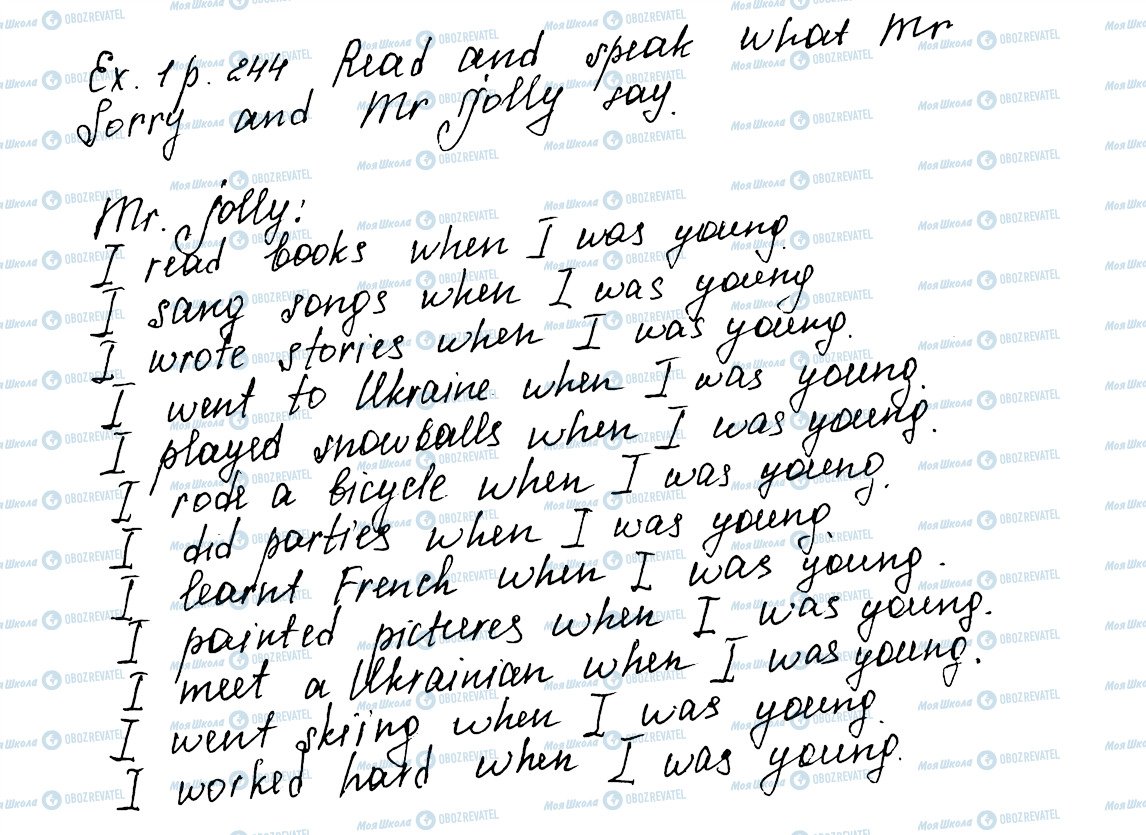 Ex. 1 p. 244 Read and speak what Mr
Sorry and Mr Jolly say.
Mr. Jolly:
I read books when I was young
I sang songs when I was young
I wrote stories when I was young.
I went to Ukraine when I was young.
I played snowballs when I was young.
I rode a bicycle when I was young.
I did parties when I was young.
I learnt French when I was young.
I painted pictures when I was young.
I meet a Ukrainian when I was young.
I went skiing when I was young.
I worked hard when I was young.